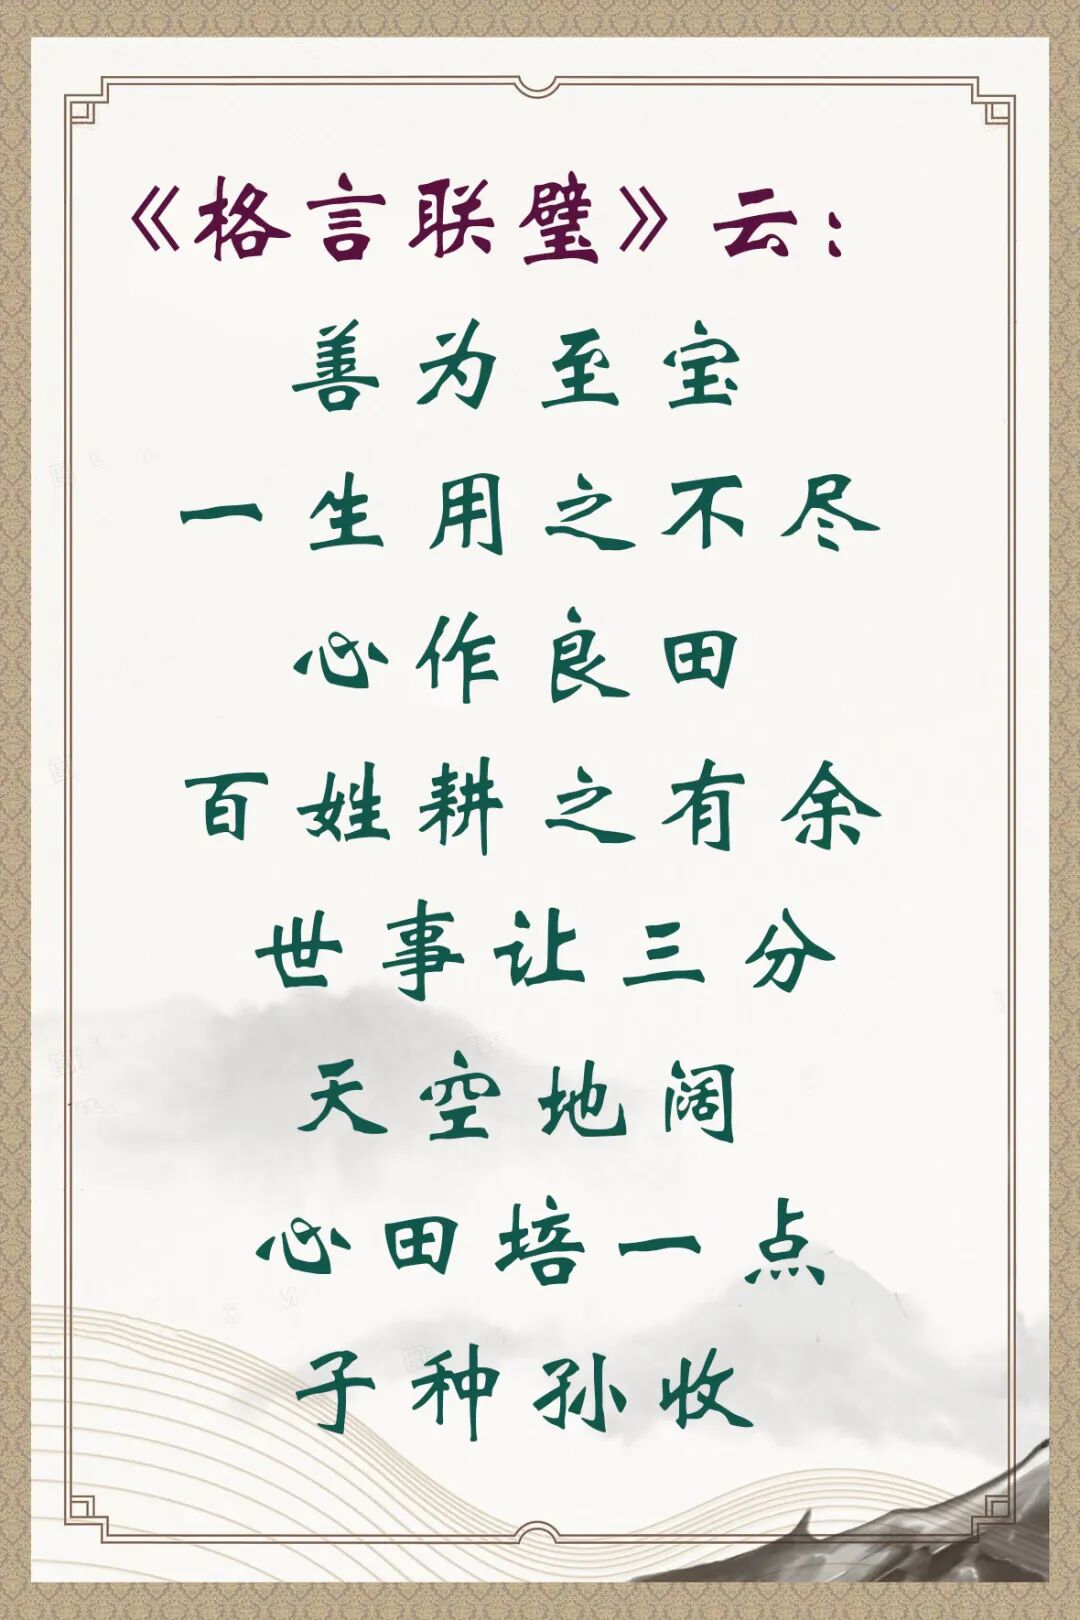 《格言联璧》云：
善为至宝
一生用之不尽
心作良田
百姓耕之有余
世事让三分
天空地阔
心田培一点
子种孙收